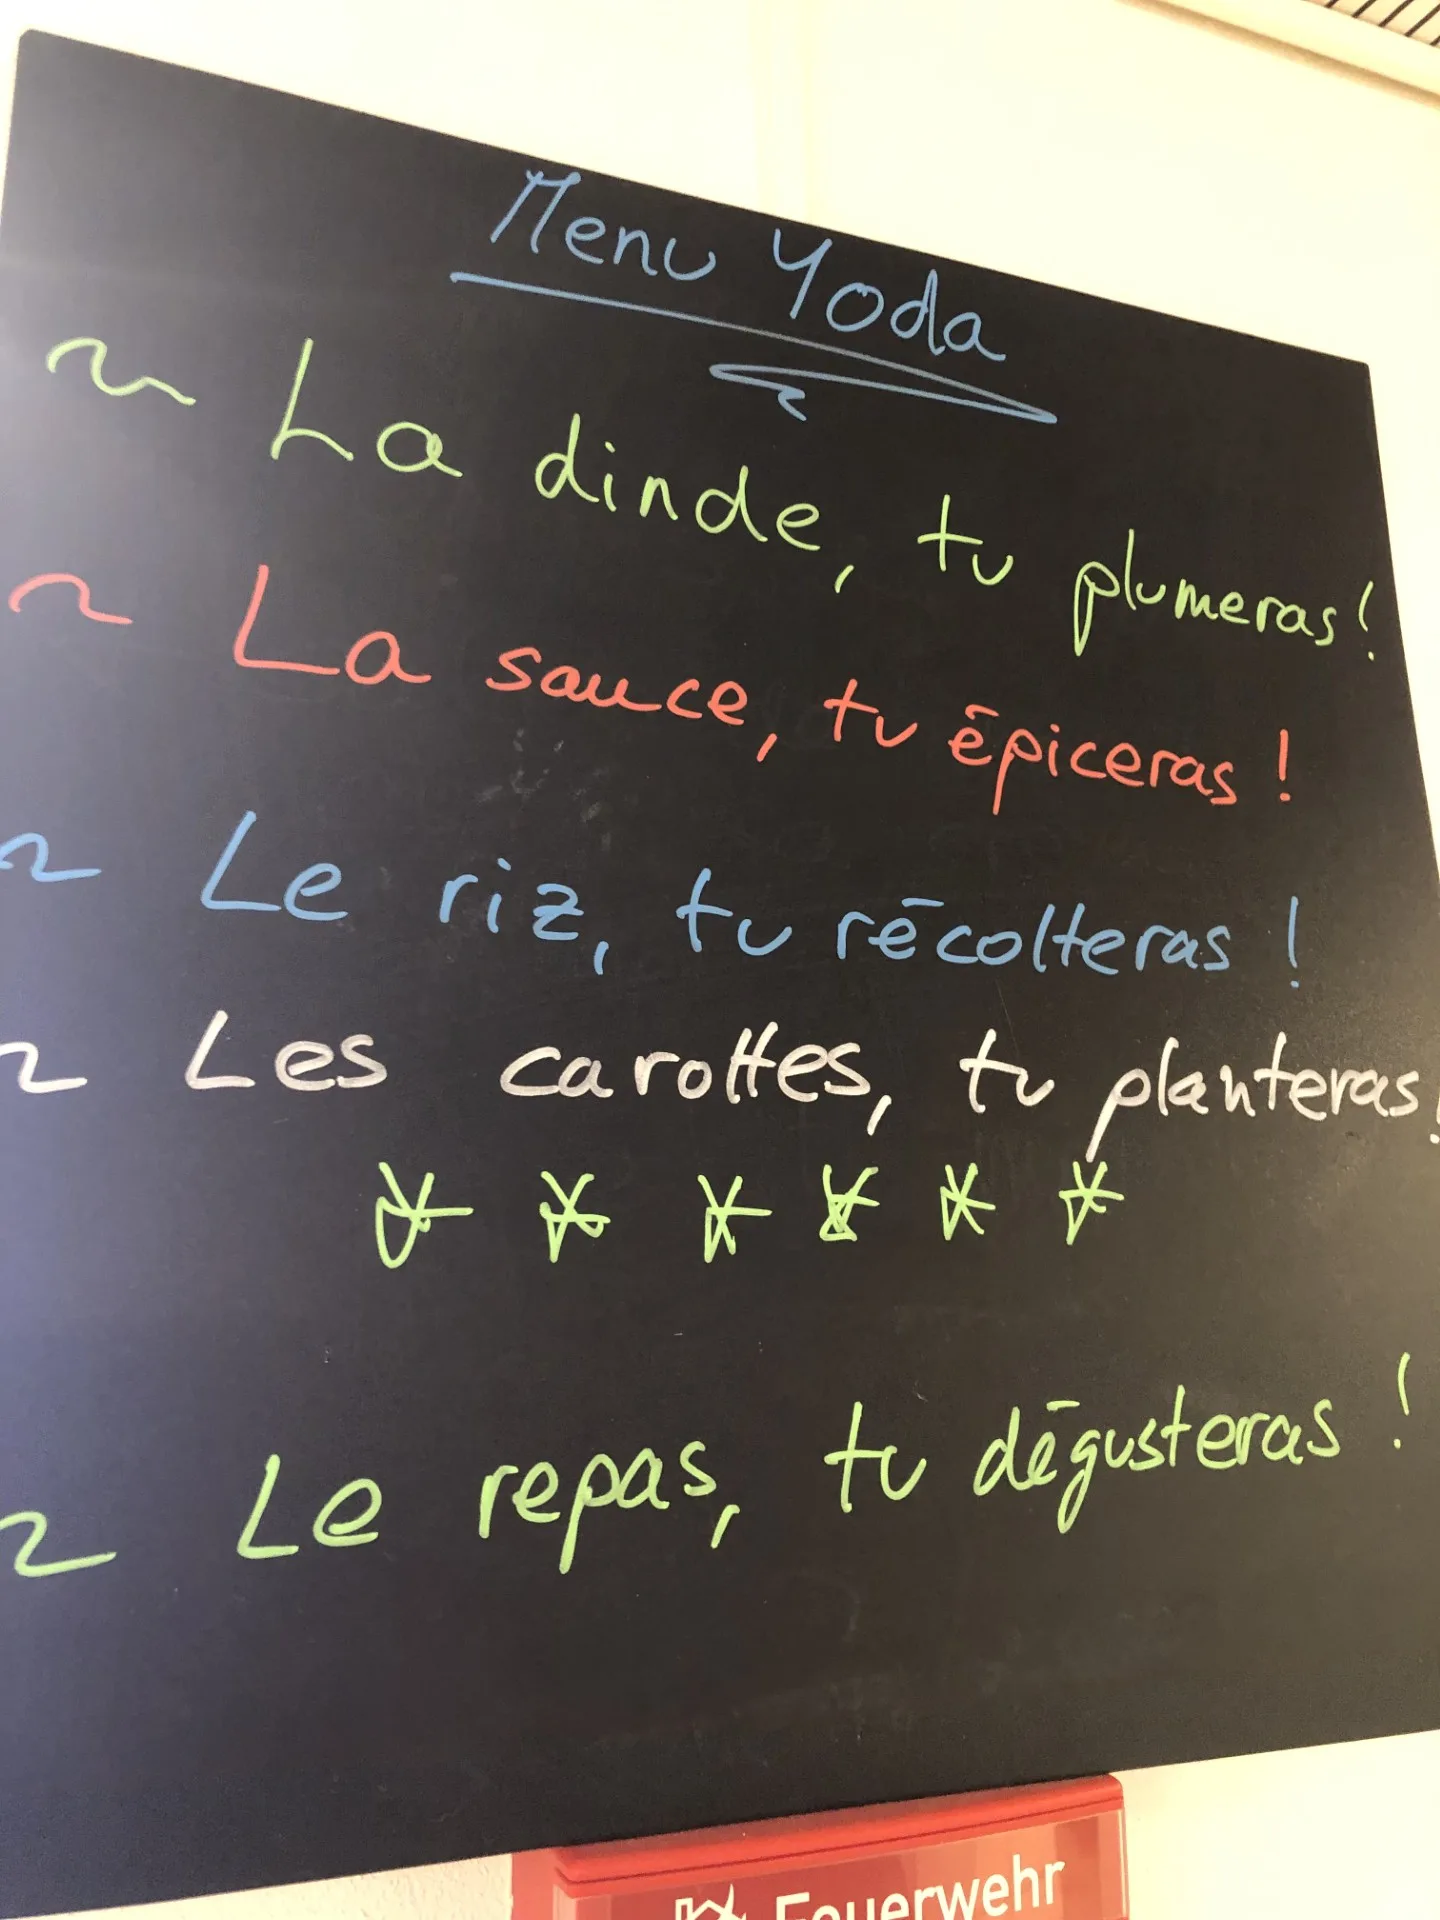 Menu Yoda
~ La dinde, tu plumeras!
~ La sauce, tu épiceras!
~ Le riz, tu récolteras!
~ Les carottes, tu planteras!
* * * * * *
~ Le repas, tu dégusteras!
Feuerwehr